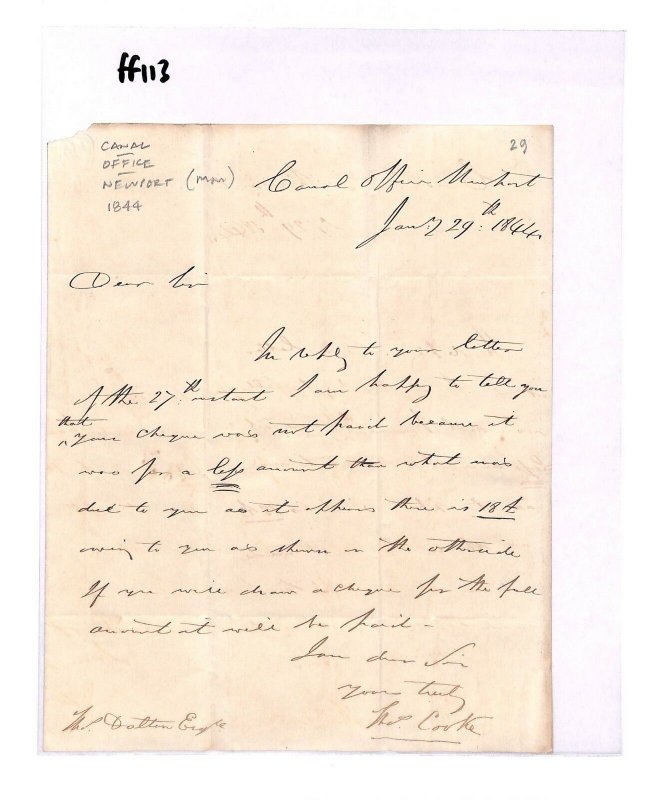 ff113
CANAL
OFFICE
NEWPORT (Mon)
1844
29
Canal Office Newport
Jany 29th: 1844
Dear Sir
In reply to your letter
of the 27th: instant I am happy to tell you
that
^ your cheque was not paid because it
was for a less amount than what was
due to you as it appears there is
owing to you as shewn on the otherside
If you will draw a cheque for the full
amount it will be paid -
I am dear Sir
yours truly
Thos. Cooke
Thos. Dalton Esqre